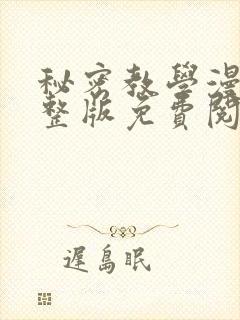 秘密教學漫
整版免費閱
遲島眠